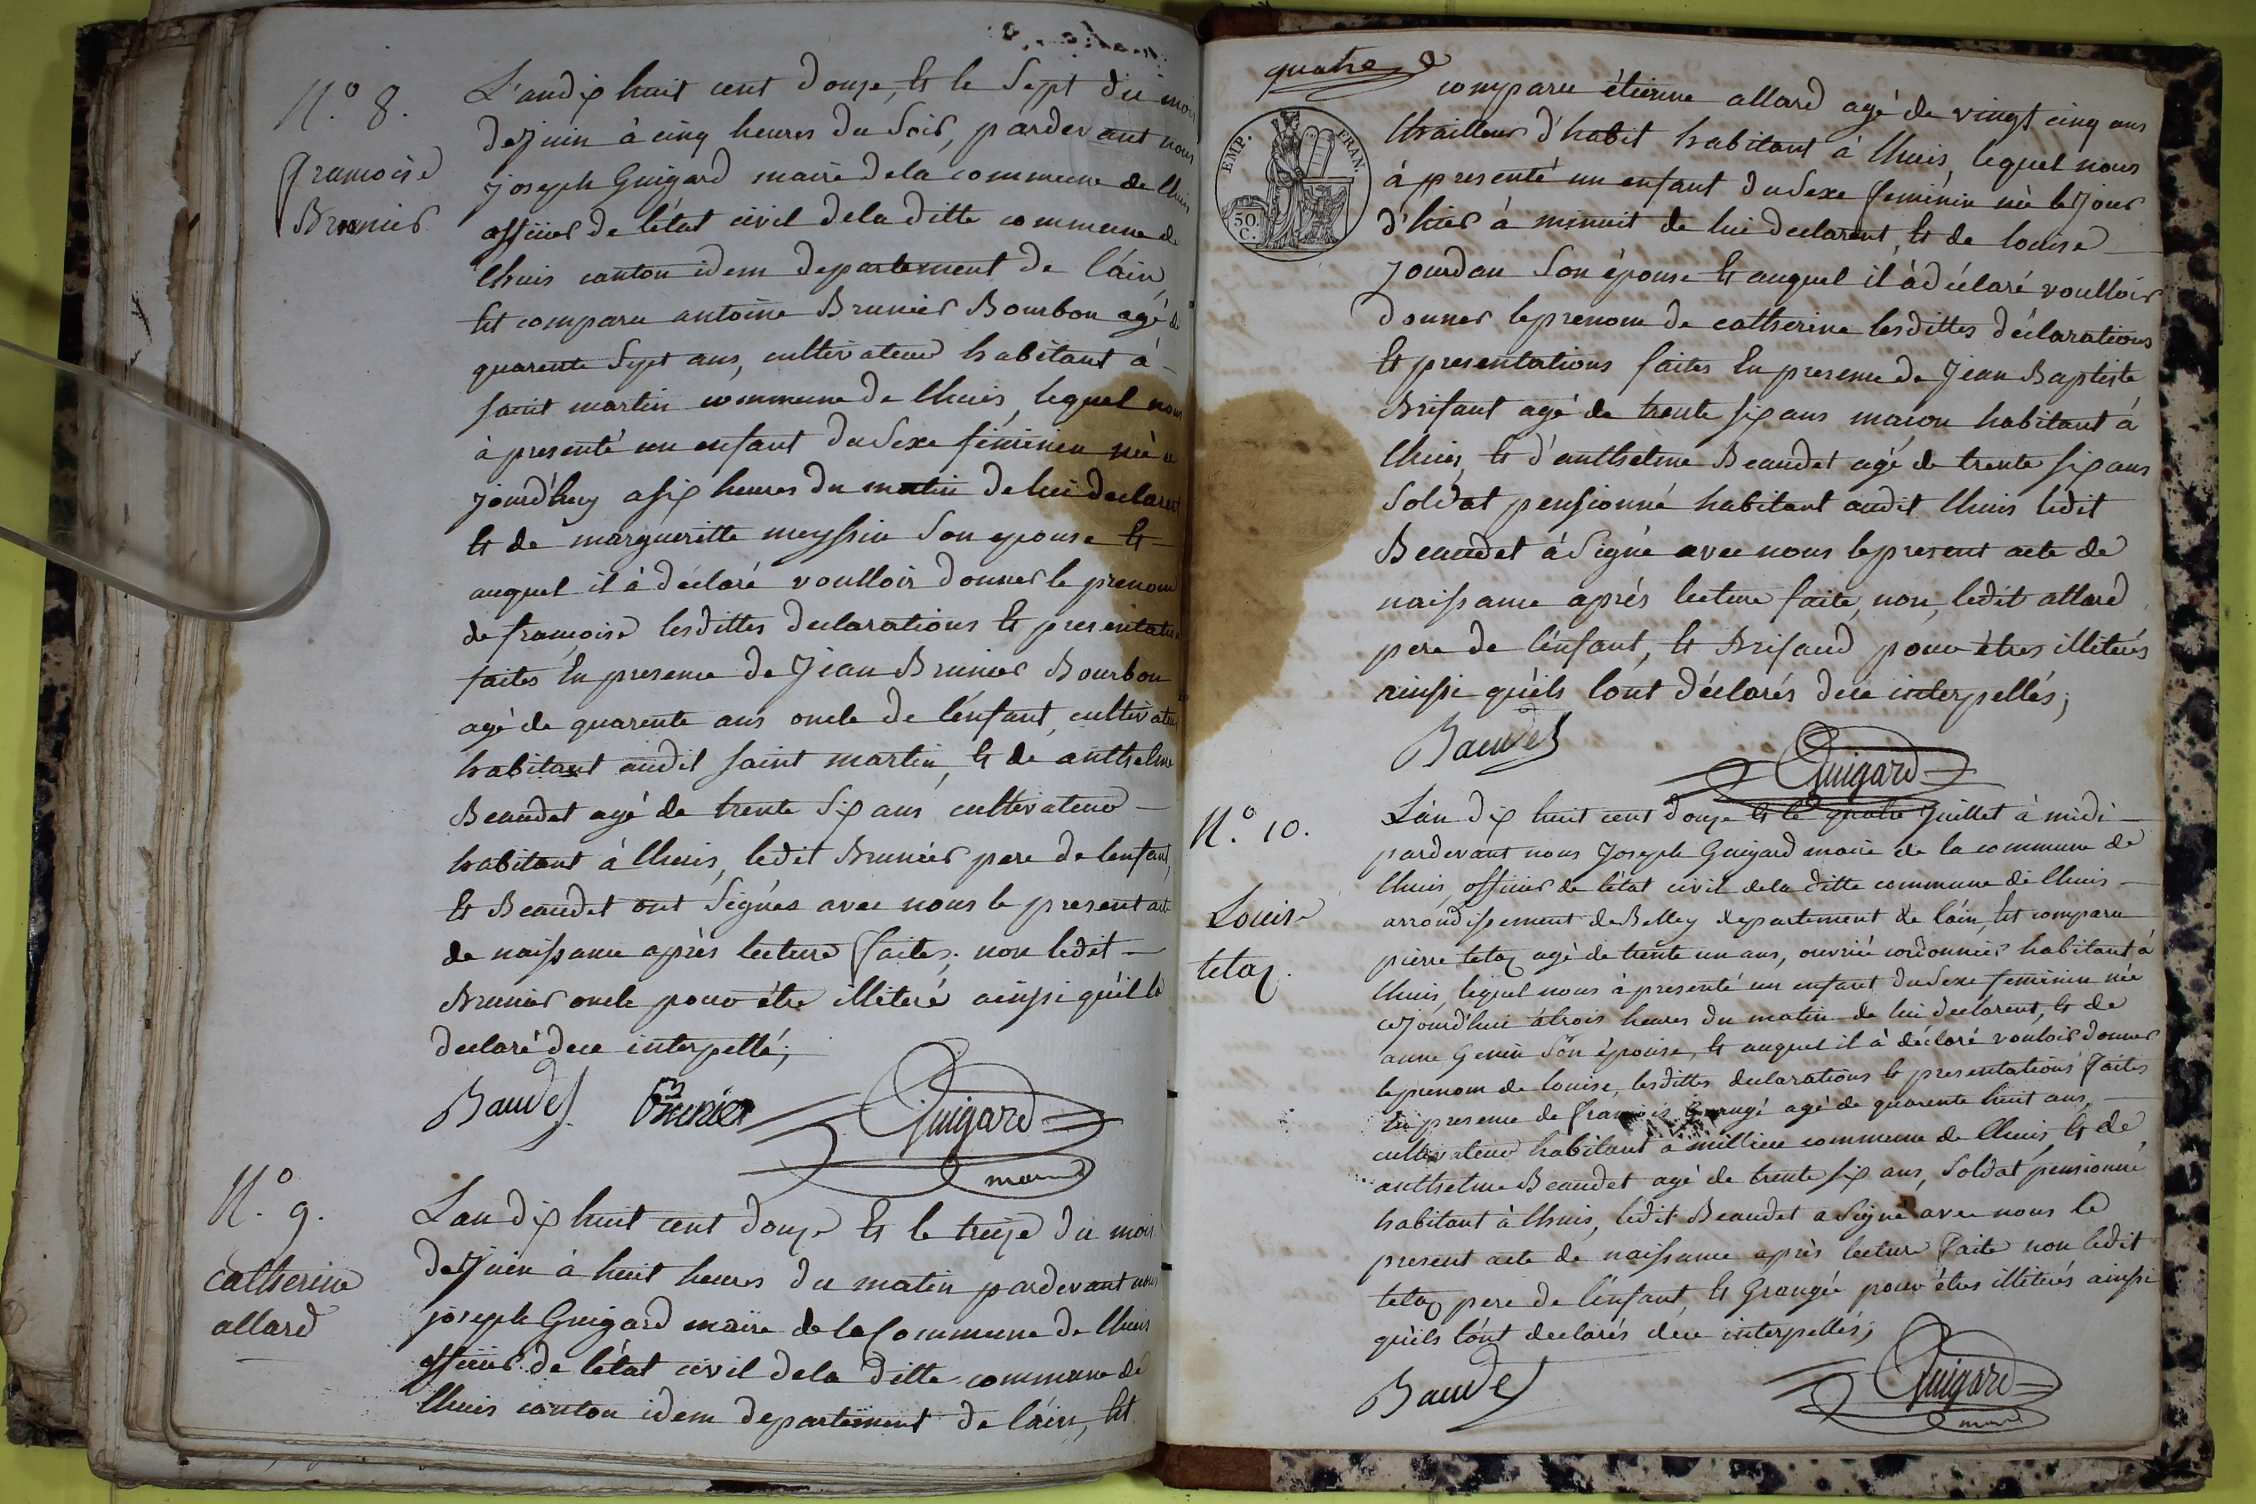 N.o 8.
françoise
Brunier
L'an dix huit cent douze, Et le Sept du mois
de juin à cinq heures du Soir, pardevant nous
joseph Guigard maire de la commune de lhuis
officier de l'état civil de la ditte commune de
lhuis canton idem departement de l'áin,
Est comparu antoine Brunier Bourbon agé de
quarente Sept ans, cultivateur habitant à
saint martin commune de lhuis, lequel nous
à presenté un enfant du Sexe féminien née ce
jourd'huy a six heures du matin de lui declarent
Et de margueritte meyssin Son epouse Et
auquel il à déclaré voulloir donner le prenom
de françoise lesdittes declarations Et presentations
faites En presence de Jean Brunier Bourbon
agé de quarente ans oncle de l'énfant, cultivateur
habitant audit saint martin, Et de anthelme
Beaudet agé de trente Six ans cultivateur
habitant à lhuis, ledit Brunier pere de lenfant,
Et Beaudet ont Signés avec nous le present acte
de naissance après lecture faites. non ledit
Brunier oncle pour étre illiteré ainsi qu'il l'a
declaré de ce interpellé;
Baudet Brunier Guigard
maire
N.o 9.
catherine
allard
L'an dix huit cent douze Et le treize du mois
de Juin à huit heures du matin pardevant nous
joseph Guigard maire de la Commune de lhuis
officier de l'état civil de la ditte commune de
lhuis canton idem departement de l'áin, Est
quatre
EMP. FRAN.
50 C.
comparu étienne allard agé de vingt cinq ans
thailleur d'habit habitant à lhuis, lequel nous
à presenté un enfant du Sexe feminin né le jour
d'hier à minuit de lui declarent, Et de louise
jourdan Son épouse Et auquel il à déclaré voulloir
donner le prenom de catherine lesdittes déclarations
Et presentations faites En presence de Jean Baptiste
Brifaut agé de trente six ans maçon habitant à
lhuis, Et d'anthelme Beaudet agé de trente six ans
Soldat pensionné habitant audit lhuis ledit
Beaudet à Signé avec nous le present acte de
naissance aprés lecture faite, non ledit allard
pere de l'énfant, Et Brifaud pour étres illiterés
ainsi qu'ils l'ont déclarés de ce interpellés;
Baudet Guigard
N.o 10.
Louise
tetaz.
L'án dix huit cent douze Et le quatre Juillet à midi
pardevant nous Joseph Guigard maire de la commune de
lhuis, officier de l'état civil de la ditte commune de lhuis
arrondissement de Belley departement de l'áin, Est comparu
pierre tetaz agé de trente un ans, ouvrié cordonnier habitant à
lhuis, lequel nous à presenté un enfant du Sexe feminin née
cejourd'hui à trois heures du matin de lui declarent, Et de
anne Genin Son épouse, Et auquel il à déclaré vouloir donner
le prenom de louise, lesdittes declarations Et presentations faites
En presence de françois Grangé agé de quarente huit ans,
cultivateur habitant à millieu commune de lhuis, Et de
anthelme Beaudet agé de trente six ans, Soldat pensionné
habitant à lhuis, ledit Beaudet a Signé avec nous le
present acte de naissance après lecture faite non ledit
tetaz pere de l'énfant, Et Grangée pour étres illiterés ainsi
qu'ils l'ont declarés de ce interpellés;
Baudet Guigard
maire